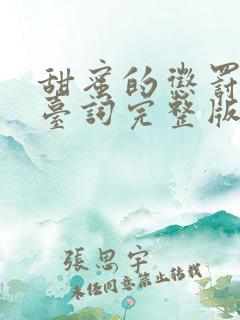 甜蜜的懲罰
臺詞完整版
張思宇
未經同意禁止轉載